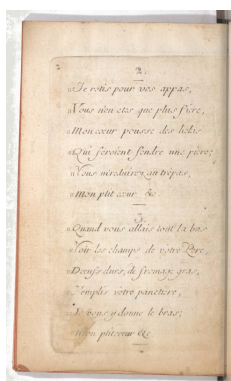 2
2.
"Je rotis pour vos appas,
"Vous n'en etes que plus fiere,
"Mon cœur pousse des helas
"Qui feroient fendre une piere;
"Vous me réduirez au trépas,
"mon ptit cœur &c
3.
"Quand vous allais tout la bas
"Voir les champs de votre Pere,
"D'œufs durs, de fromag gras,
"J'emplis votre panetiere,
"Je vous y donne le bras;
"mon ptit cœur &c